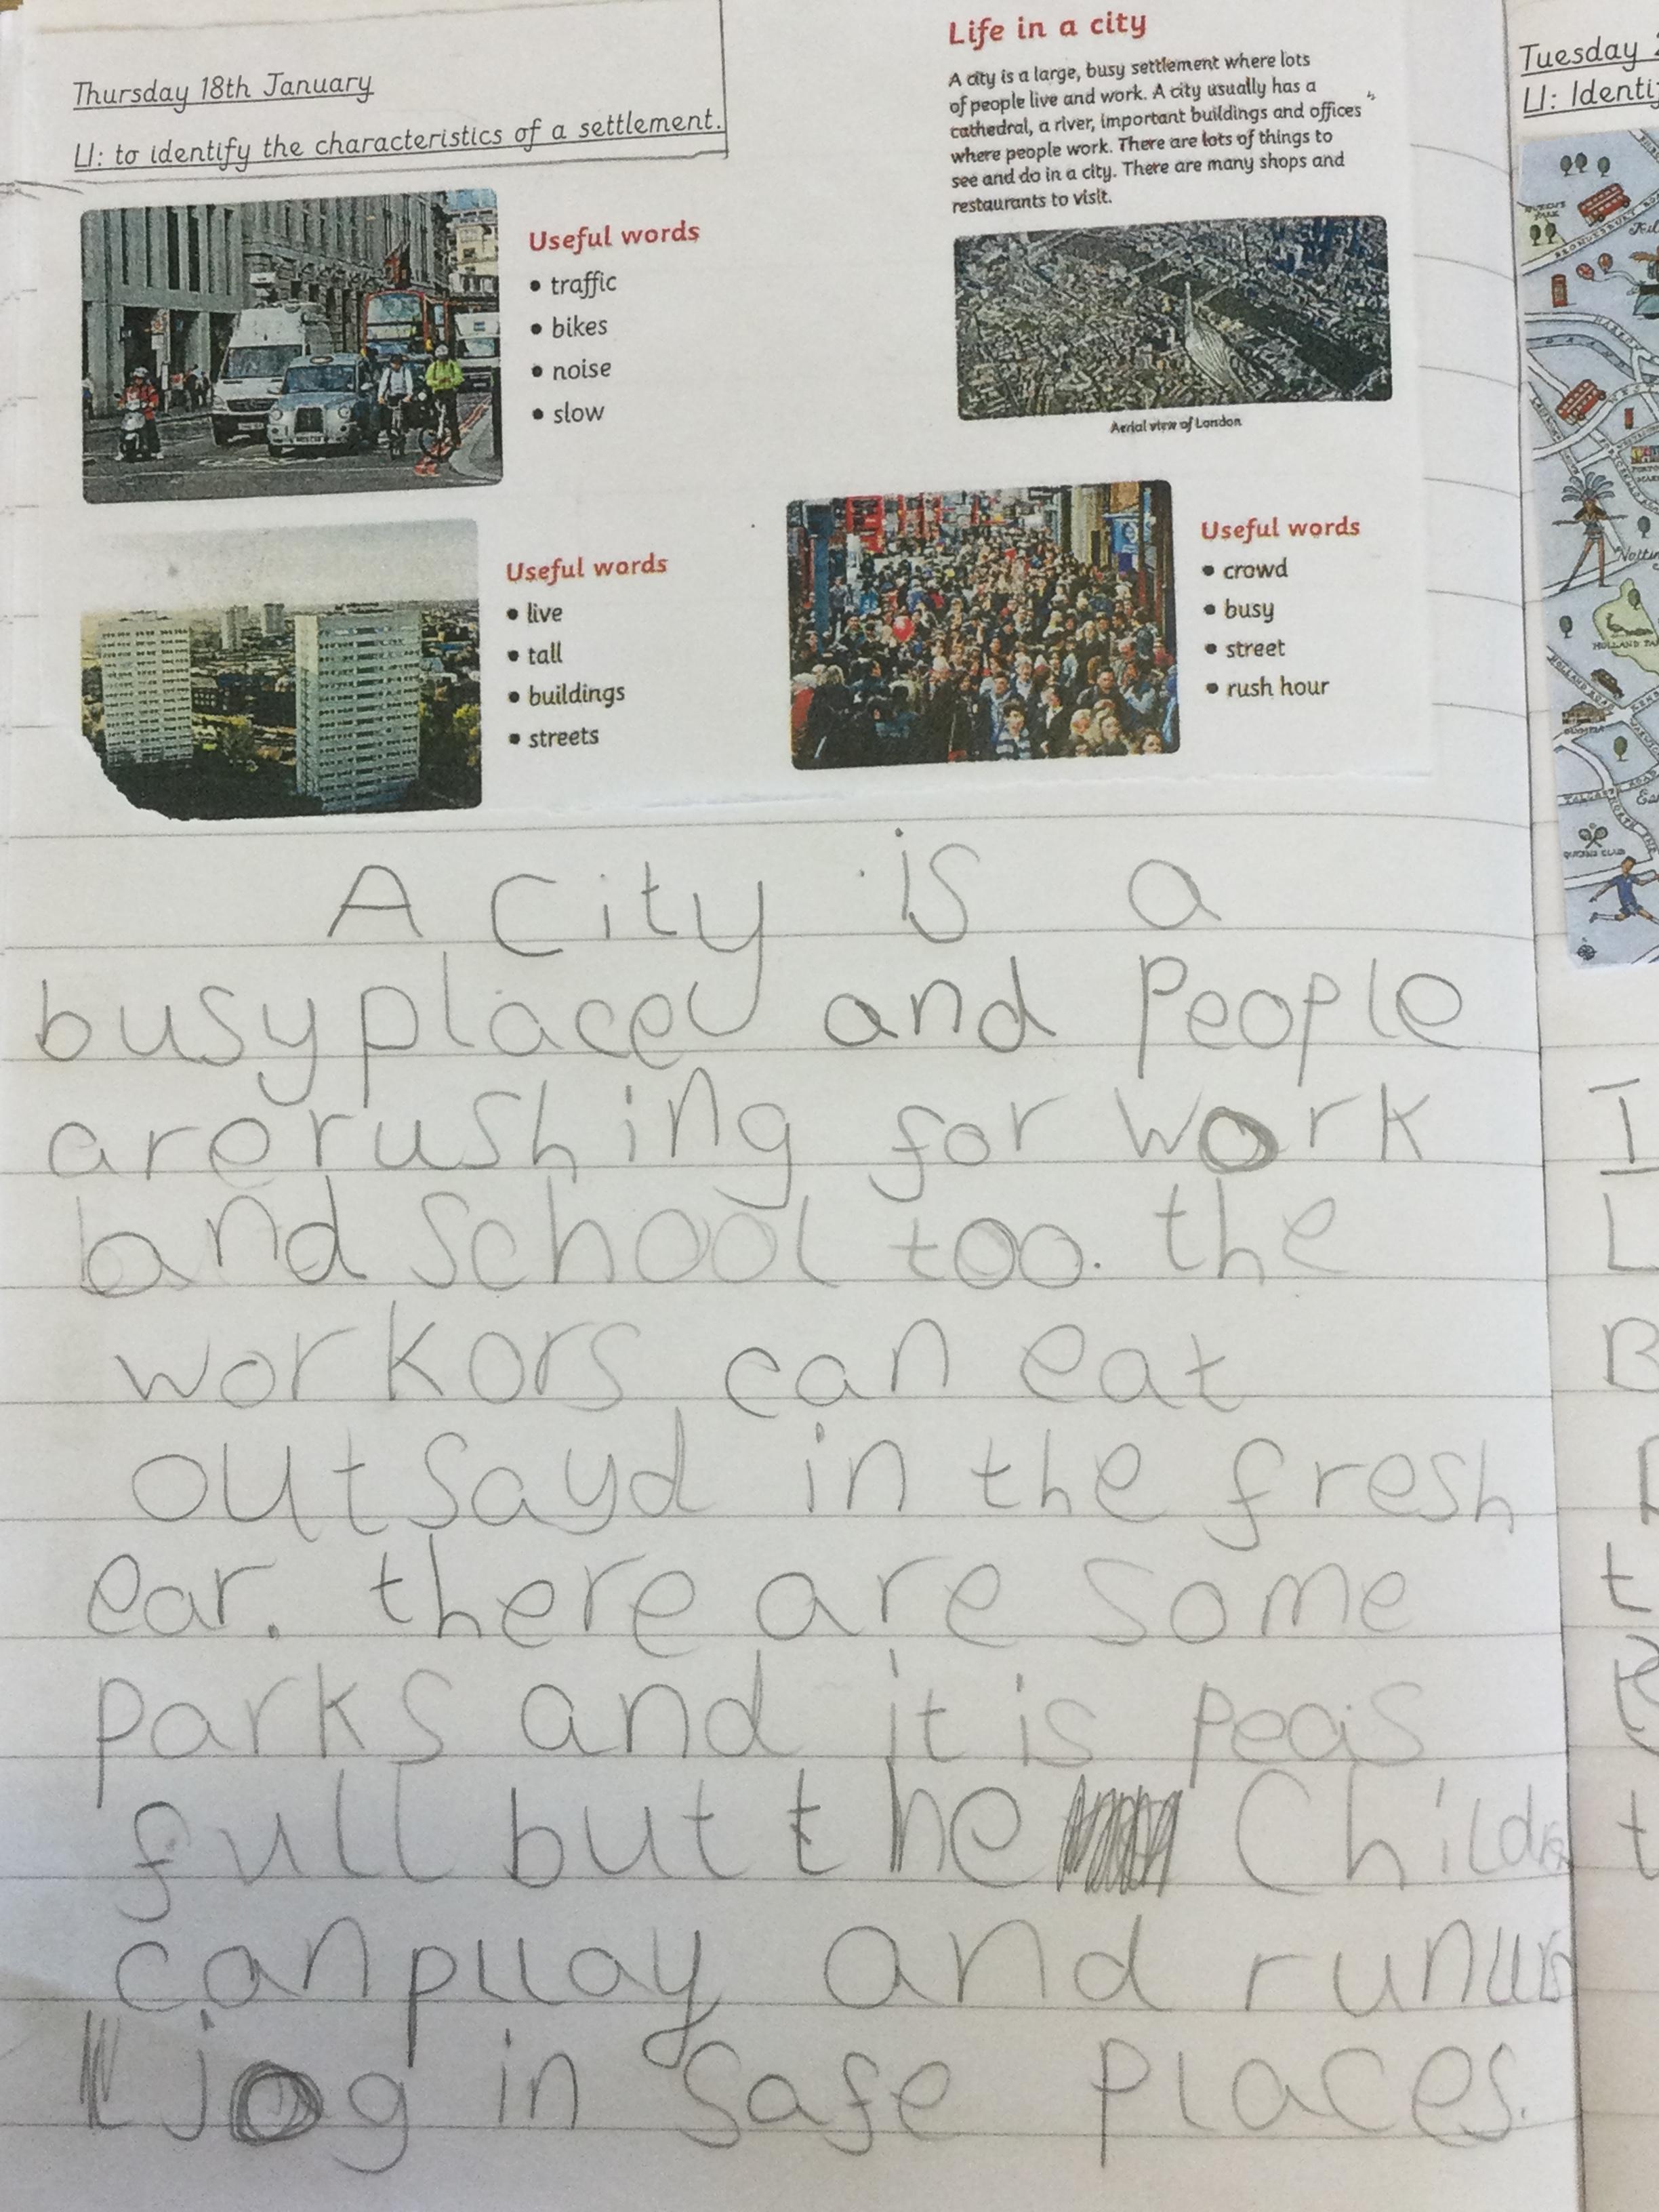 Thursday 18th January
LI: to identify the characteristics of a settlement.
Useful words
• traffic
• bikes
• noise
• slow
Life in a city
A city is a large, busy settlement where lots
of people live and work. A city usually has a
cathedral, a river, important buildings and offices
where people work. There are lots of things to
see and do in a city. There are many shops and
restaurants to visit.
Aerial view of London
Useful words
• live
• tall
• buildings
• streets
Useful words
• crowd
• busy
• street
• rush hour
A city is a
busy place and People
are rushing for work
and School too. the
workors can eat
outsayd in the fresh
ear. there are some
parks and it is peas
full but the Childre
can pllay and run
jog in safe places.
Tuesday
LI: Identi
HOLLAND PA